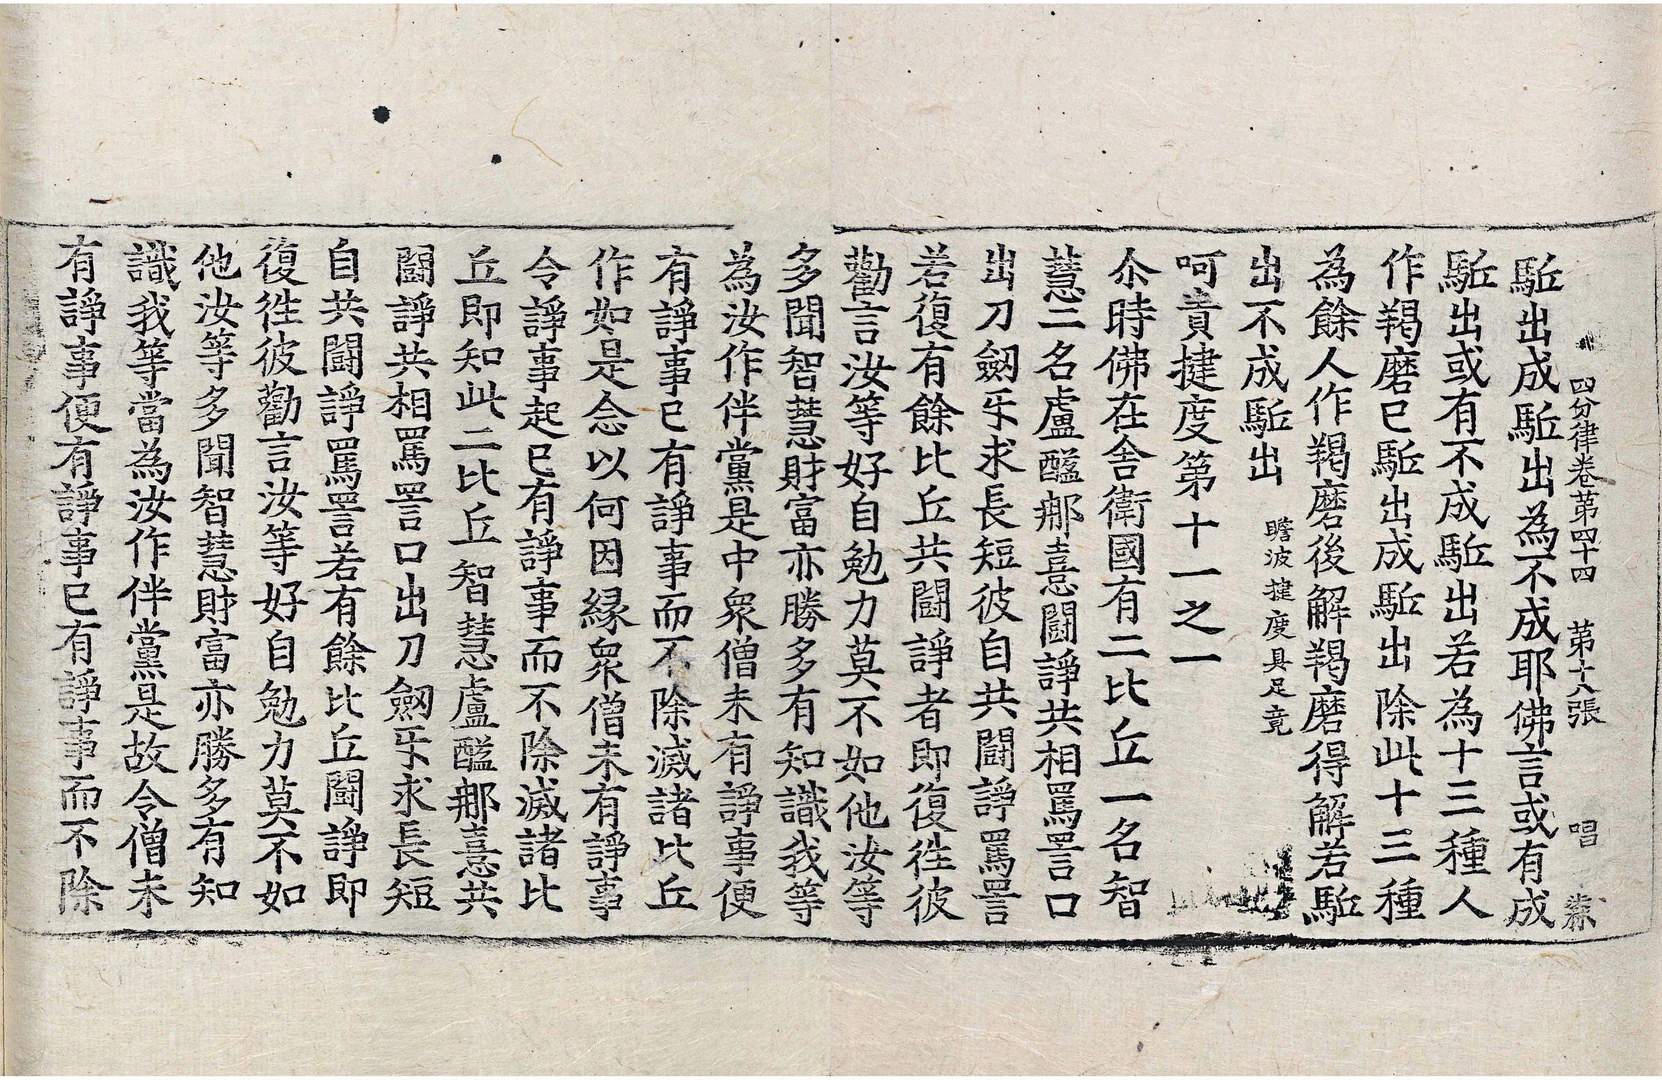 四分律卷第四十四　第十八張　唱
駈出成駈出為不成耶佛言或有成
駈出或有不成駈出若為十三種人
作羯磨已駈出成駈出除此十三種
為餘人作羯磨後解羯磨得解若駈
出不成駈出　瞻波揵度具足竟
呵責揵度第十一之一
尒時佛在舍衛國有二比丘一名智
慧二名盧醯那憙鬪諍共相罵詈口
出刀劒𤓰求長短彼自共鬪諍罵詈
若復有餘比丘共鬪諍者即復徃彼
勸言汝等好自勉力莫不如他汝等
多聞智慧財富亦勝多有知識我等
為汝作伴黨是中衆僧未有諍事便
有諍事已有諍事而不除滅諸比丘
作如是念以何因縁衆僧未有諍事
令諍事起已有諍事而不除滅諸比
丘即知此二比丘智慧盧醯那憙共
鬪諍共相罵詈口出刀劒𤓰求長短
自共鬪諍罵詈若有餘比丘鬪諍即
復徃彼勸言汝等好自勉力莫不如
他汝等多聞智慧財富亦勝多有知
識我等當為汝作伴黨是故令僧未
有諍事便有諍事已有諍事而不除